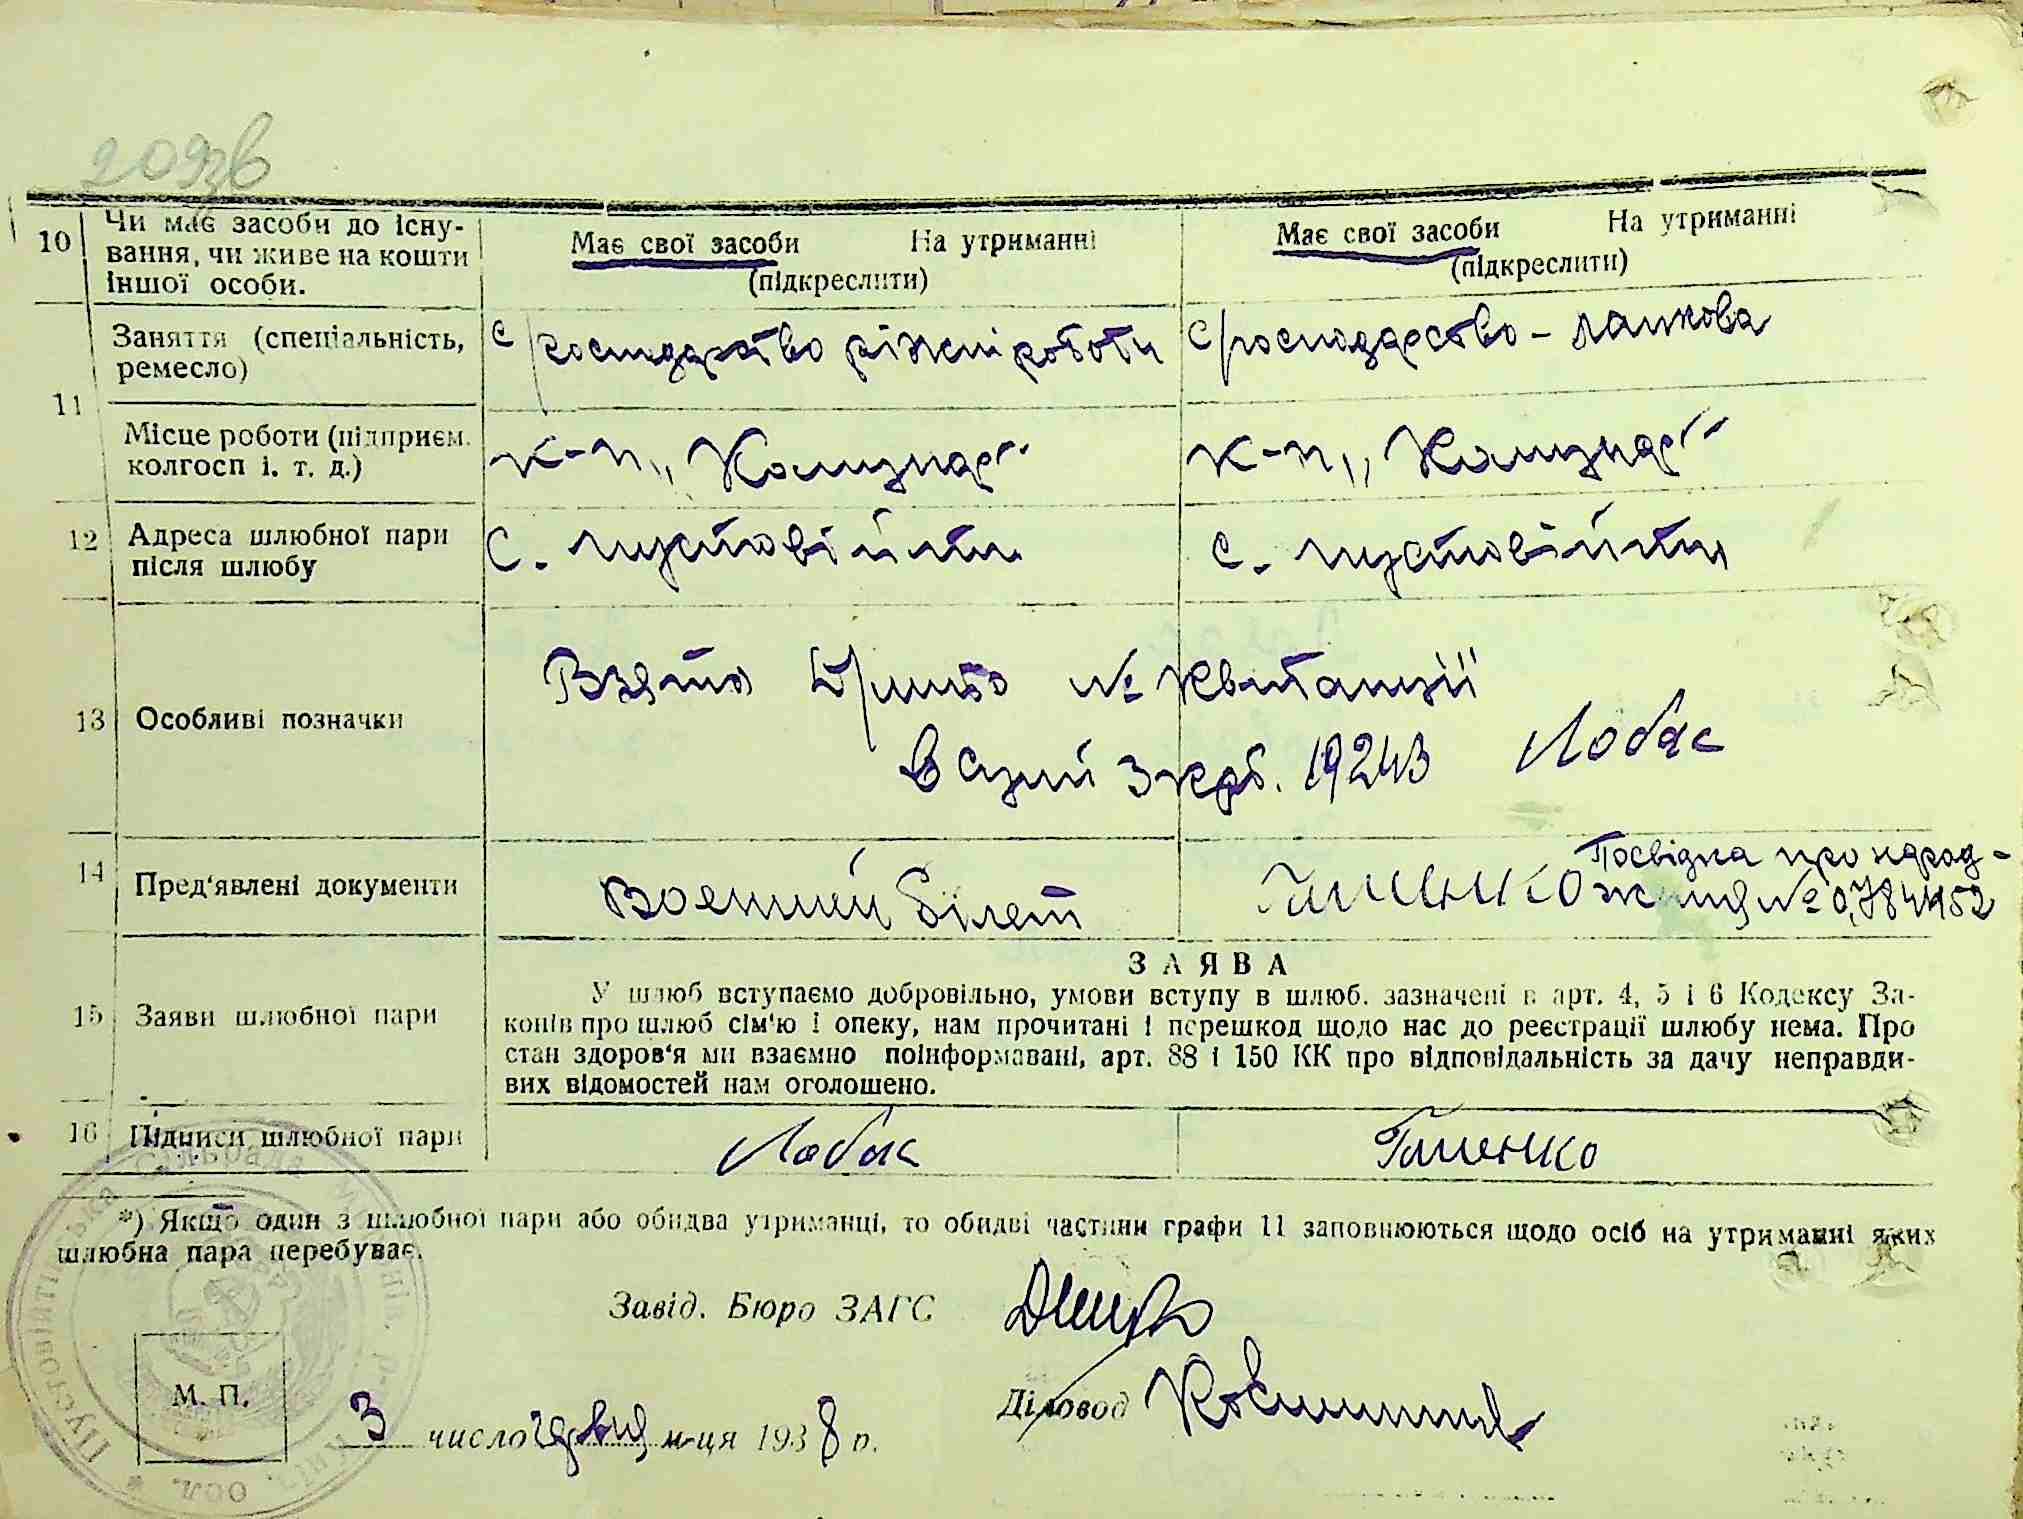 209зв
10 Чи має засоби до існу-
вання, чи живе на кошти
іншої особи.
Має свої засоби На утриманні
(підкреслити)
Має свої засоби На утриманні
(підкреслити)
11
Заняття (спеціальність,
ремесло)
с/господарство ріжні роботи
с/господарство - ланкова
Місце роботи (підприєм.
колгосп і. т. д.)
к-п,, Комунар"
к-п,, Комунар"
12 Адреса шлюбної пари
після шлюбу
с. пустовійти
с. пустовійти
13 Особливі позначки
Взято № Квітанції
в сумі 3 крб. 19243 Лобас
14 Пред'явлені документи
Военний білет
Гименко Посвідка про народ-
ження №
15 Заяви шлюбної пари
ЗАЯВА
У шлюб вступаємо добровільно, умови вступу в шлюб. зазначені в арт. 4, 5 і 6 Кодексу За-
конів про шлюб сім'ю і опеку, нам прочитані і перешкод щодо нас до реєстрації шлюбу нема. Про
стан здоров'я ми взаємно поінформавані, арт. 88 і 150 КК про відповідальність за дачу неправди-
вих відомостей нам оголошено.
16 Підписи шлюбної пари
Лобас
Гименко
*) Якщо один з шлюбної пари або обидва утриманці, то обидві частини графи 11 заповнюються щодо осіб на утриманні яких
шлюбна пара перебуває.
Завід. Бюро ЗАГС
Діловод
М. П.
3 число м-ця 1938 р.
Пустовійтівська Сільрада